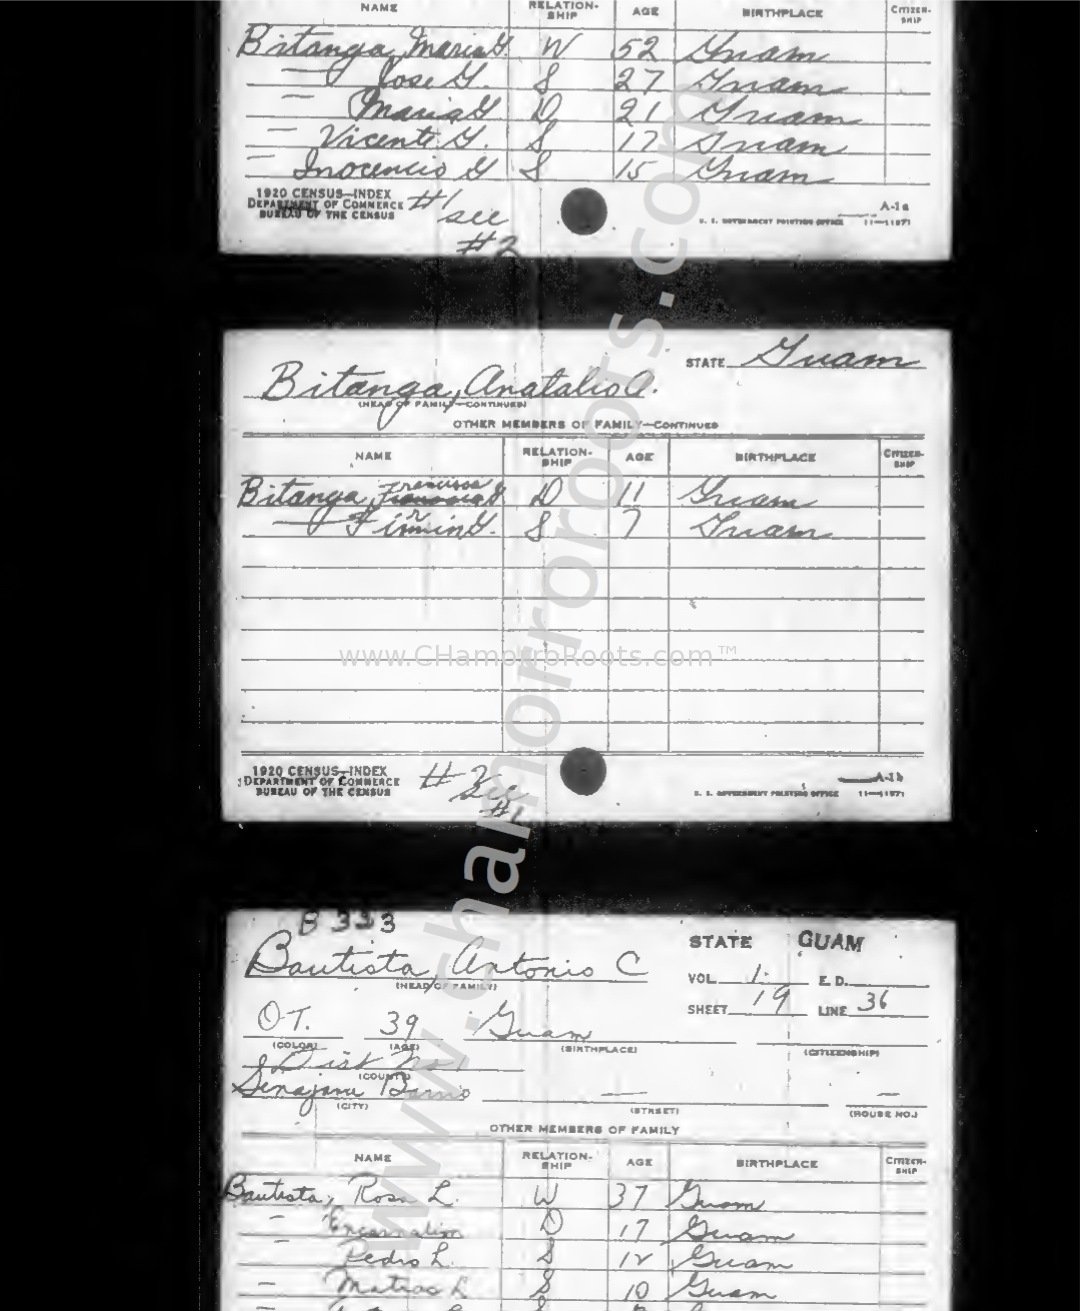 NAME RELATION-SHIP AGE BIRTHPLACE CITIZEN-SHIP
Bitanga, Maria G. W 52 Guam
— Jose G. S 27 Guam
— Maria G D 21 Guam
— Vicente G. S 17 Guam
— Inocencio G S 15 Guam
1920 CENSUS—INDEX
DEPARTMENT OF COMMERCE
BUREAU OF THE CENSUS
#1 see
#2
A-1a
U. S. GOVERNMENT PRINTING OFFICE 11—11871
STATE Guam
Bitanga, Anatalio A.
(HEAD OF FAMILY—CONTINUED)
OTHER MEMBERS OF FAMILY—CONTINUED
NAME RELATION-SHIP AGE BIRTHPLACE CITIZEN-SHIP
Bitanga, Francisca G D 11 Guam
— Firmin G. S 7 Guam
www.CHamorroRoots.com™
1920 CENSUS—INDEX
DEPARTMENT OF COMMERCE
BUREAU OF THE CENSUS
#2 See
#1
A-1b
U. S. GOVERNMENT PRINTING OFFICE 11—11871
www.chamorroroots.com
B 333
STATE GUAM
Bautista, Antonio C
(HEAD OF FAMILY)
VOL. 1. E. D.
SHEET 19 LINE 36
OT. 39 Guam
(COLOR) (AGE) (BIRTHPLACE) (CITIZENSHIP)
Dist No 1
(COUNTY)
Sinajana Barrio — —
(CITY) (STREET) (HOUSE NO.)
OTHER MEMBERS OF FAMILY
NAME RELATION-SHIP AGE BIRTHPLACE CITIZEN-SHIP
Bautista, Rosa L. W 37 Guam
— Encarnation D 17 Guam
— Pedro L. S 12 Guam
— Matias L S 10 Guam